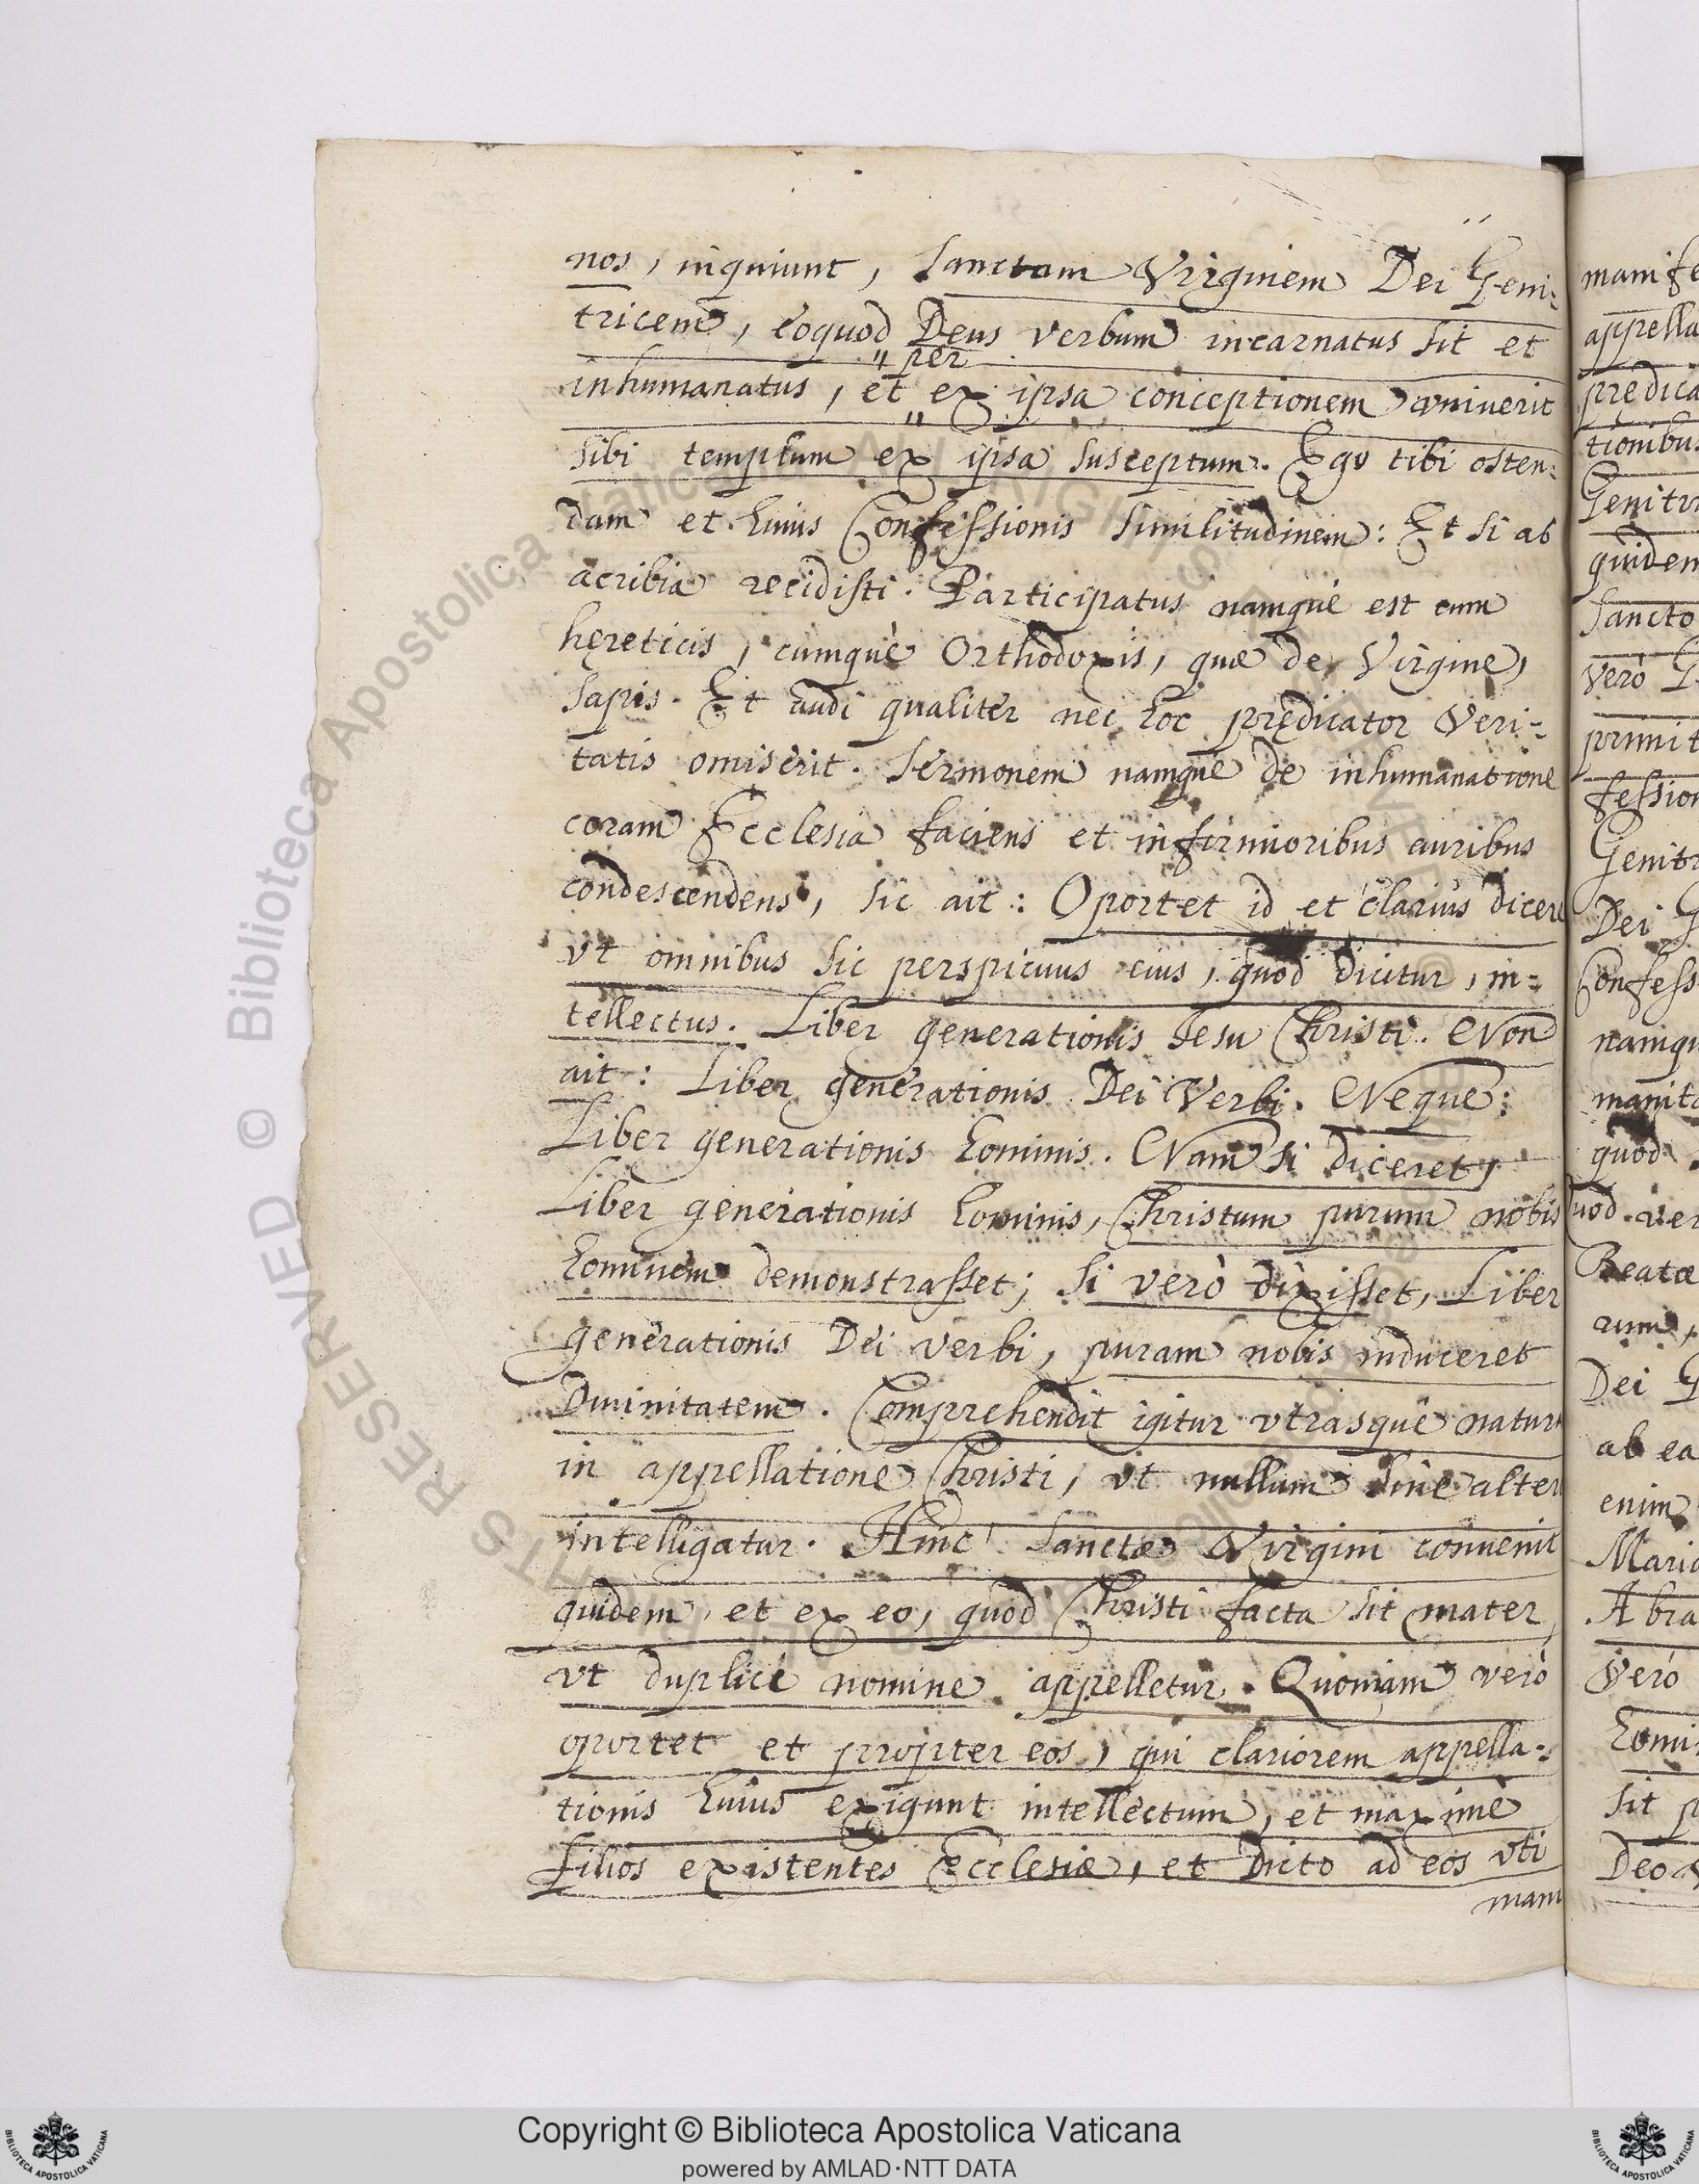 nos, inquiunt, Sanctam Virginem Dei Geni:
tricem, eoquod Deus verbum incarnatus sit et
" per
inhumanatus, et ex ipsa conceptionem univerit
"
sibi templum ex ipsa susceptum. Ego tibi osten:
dam et huius Confessionis similitudinem: Et si ab
acribia recidisti. Participatus namque est cum
hęreticis, cumquè Orthodoxis, quæ de Virgine,
sapis. Et audi qualiter nec hoc prędicator Veri-
tatis omiserit. Sermonem namque de inhumanatione
coram Ecclesia faciens et infirmioribus auribus
condescendens, sic ait: Oportet id et clariùs dicere
vt omnibus sic perspicuus eius, quod dicitur, in=
tellectus. Liber generationis Jesu Christi. Non
ait: Liber generationis Dei Verbi. Neque:
Liber generationis hominis. Nam si diceret,
Liber generationis hominis, Christum purum nobis
hominem demonstrasset; si verò dixisset, Liber
generationis Dei verbi, puram nobis induceret
Diuinitatem. Comprehendit igitur vtrasque natura
in appellatione Christi, vt nullum sine alter
intelligatur. Hinc Sanctæ Virgini conuenit
quidem, et ex eo, quod Christi facta sit mater,
vt duplici nomine appelletur. Quoniam verò
oportet et propter eos, qui clariorem appella-
tionis huius exigunt intellectum, et maxime
filios existentes Ecclesiæ, et Dicto ad eos vti
mani
manife
appella
prędica
tionibus
Genitri
quidem
Sancto
verò G
primit
fession
Genitr
Dei G
Confess
namqu
manita
quod
uod ver
Beatæ
rum,
Dei G
ab ea
enim
Maria
Abra
Verò
homi
sit p
Deo V
© Biblioteca Apostolica Vaticana ALL RIGHTS RESERVED
Copyright © Biblioteca Apostolica Vaticana
powered by AMLAD·NTT DATA
BIBLIOTECA APOSTOLICA VATICANA
BIBLIOTECA APOSTOLICA VATICANA